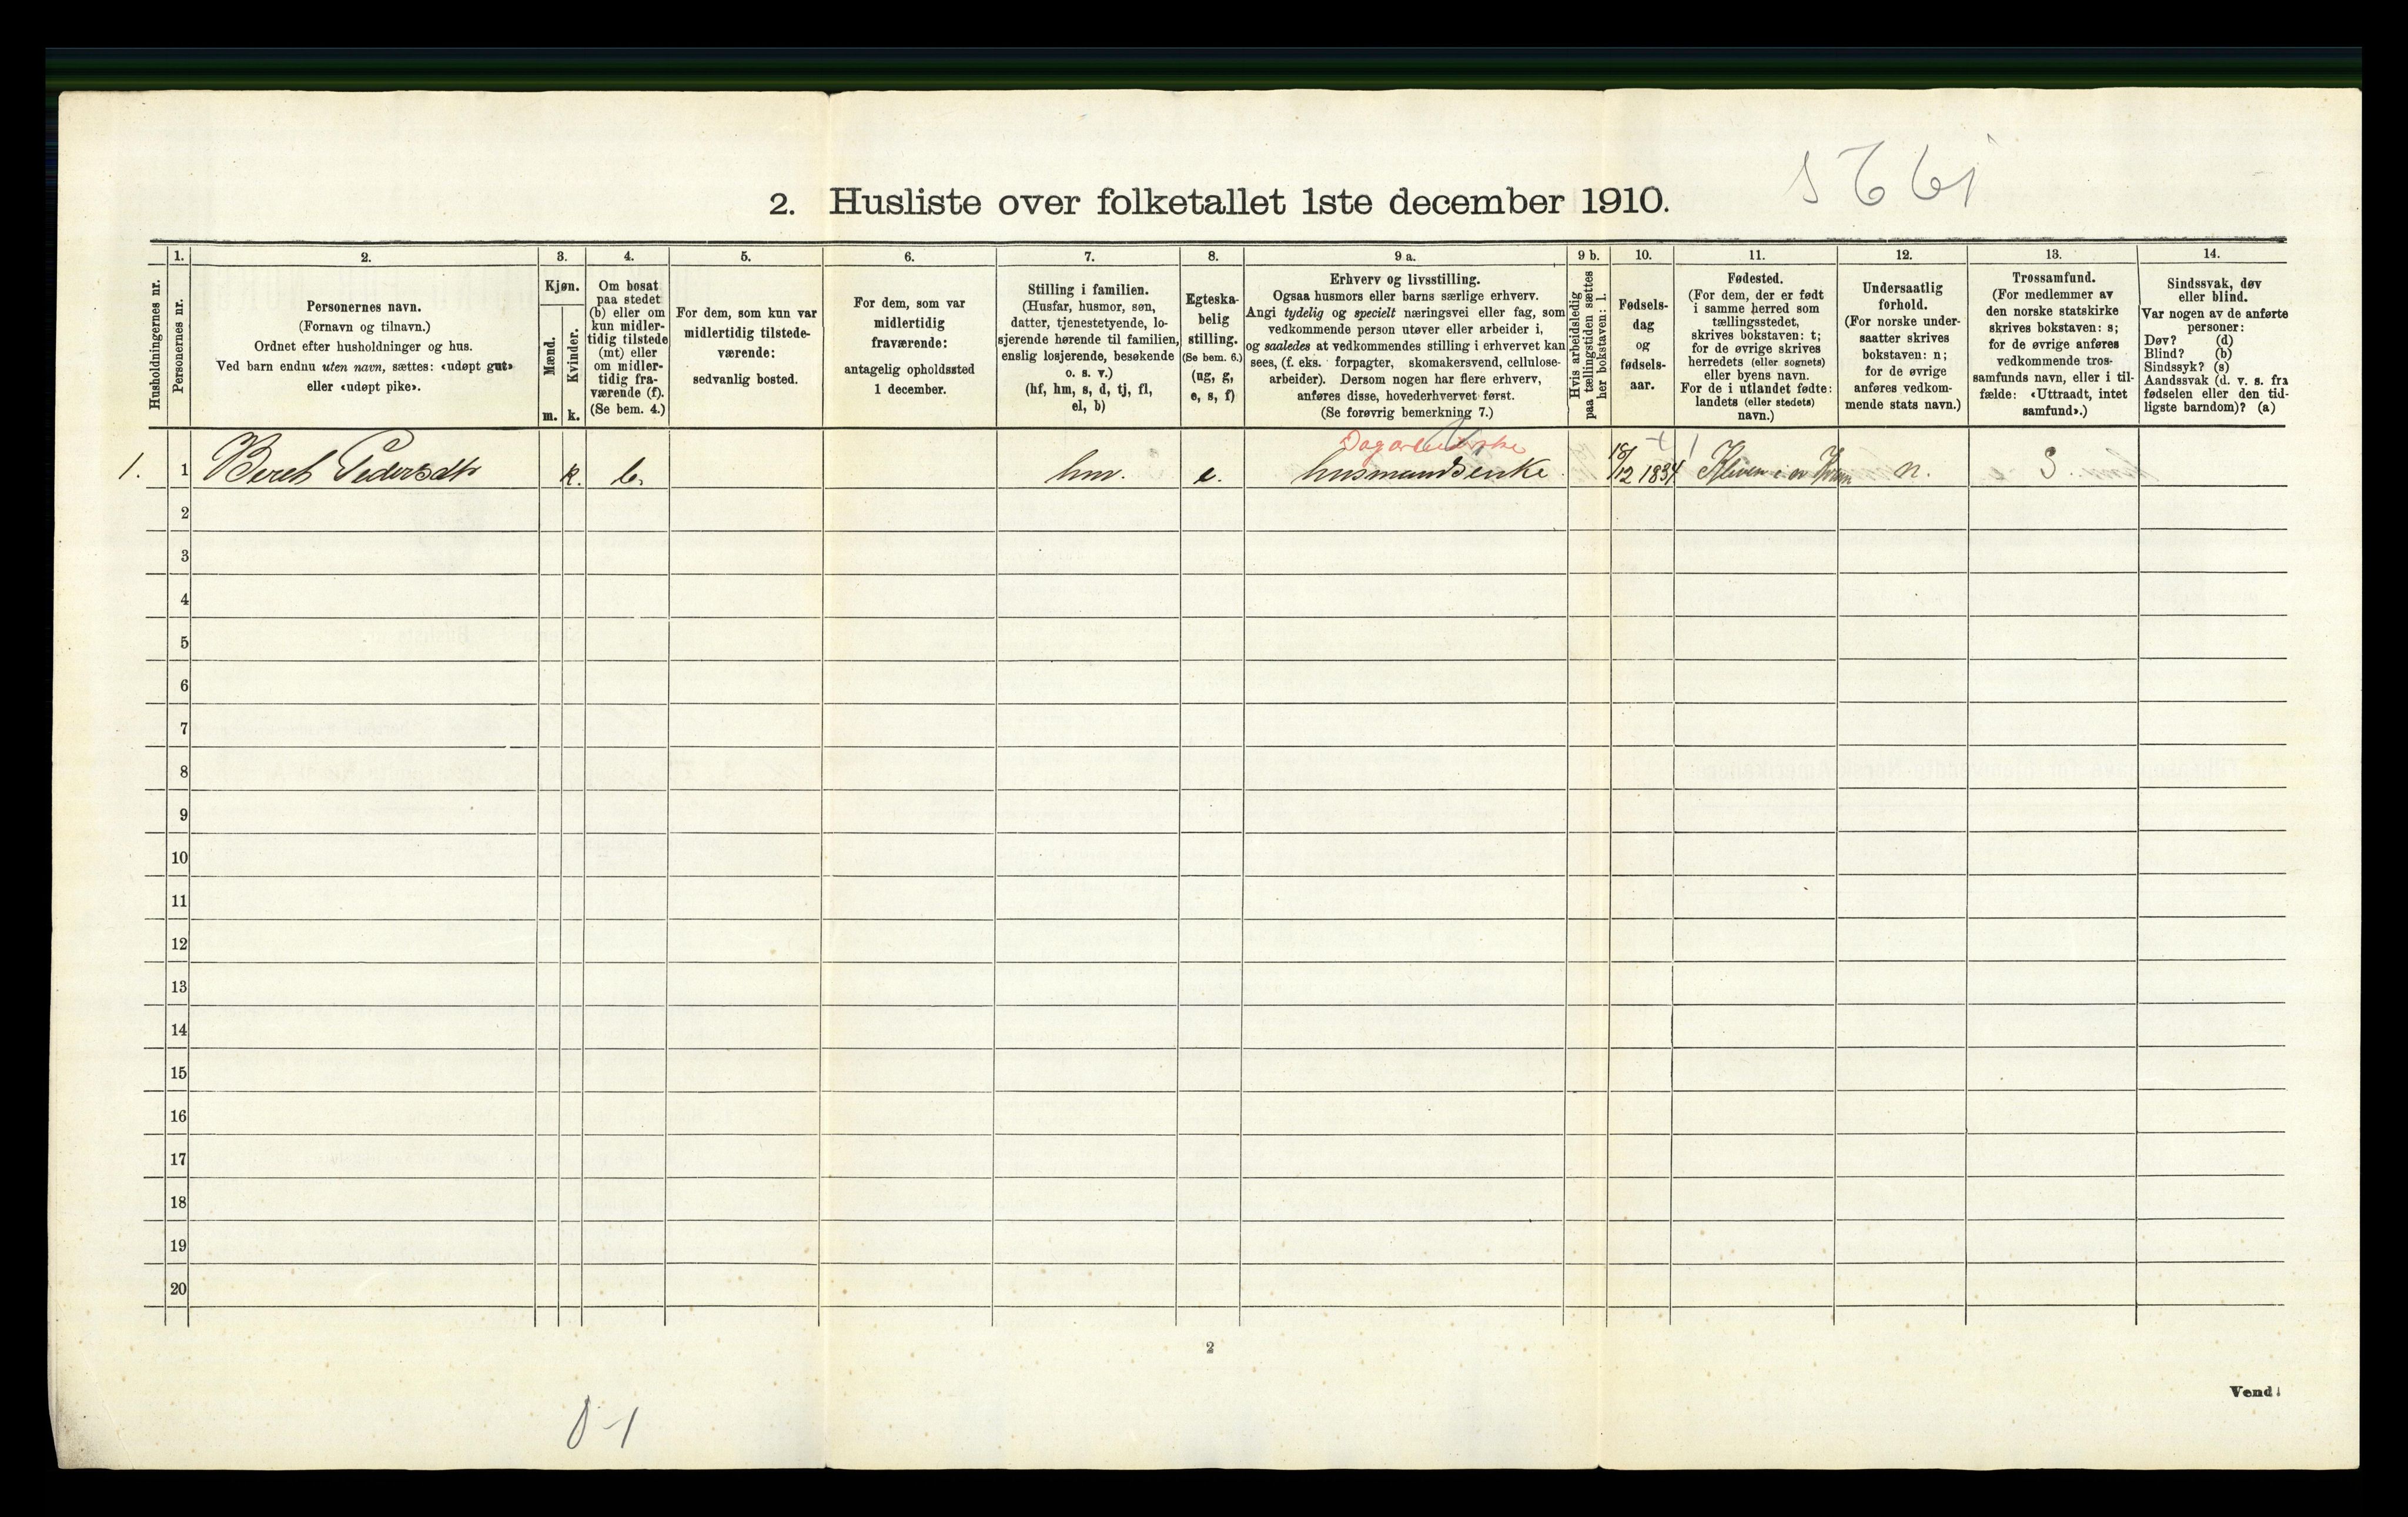 5661
2. Husliste over folketallet 1ste december 1910.
Husholdningernes nr.
1.
Personernes nr.
2.
Personernes navn.
(Fornavn og tilnavn.)
Ordnet efter husholdninger og hus.
Ved barn endnu uten navn, sættes: «udøpt gut»
eller «udøpt pike».
3.
Kjøn.
Mænd.
m.
Kvinder.
k.
4.
Om bosat
paa stedet
(b) eller om
kun midler-
tidig tilstede
(mt) eller
om midler-
tidig fra-
værende (f).
(Se bem. 4.)
5.
For dem, som kun var
midlertidig tilstede-
værende:
sedvanlig bosted.
6.
For dem, som var
midlertidig
fraværende:
antagelig opholdssted
1 december.
7.
Stilling i familien.
(Husfar, husmor, søn,
datter, tjenestetyende, lo-
sjerende hørende til familien,
enslig losjerende, besøkende
o. s. v.)
(hf, hm, s, d, tj, fl,
el, b)
8.
Egteska-
belig
stilling.
(Se bem. 6.)
(ug, g,
e, s, f)
9 a.
Erhverv og livsstilling.
Ogsaa husmors eller barns særlige erhverv.
Angi tydelig og specielt næringsvei eller fag, som
vedkommende person utøver eller arbeider i,
og saaledes at vedkommendes stilling i erhvervet kan
sees, (f. eks. forpagter, skomakersvend, cellulose-
arbeider). Dersom nogen har flere erhverv,
anføres disse, hovederhvervet først.
(Se forøvrig bemerkning 7.)
9 b.
Hvis arbeidsledig
paa tællingstiden sættes
her bokstaven: l.
10.
Fødsels-
dag
og
fødsels-
aar.
11.
Fødested.
(For dem, der er født
i samme herred som
tællingsstedet,
skrives bokstaven: t;
for de øvrige skrives
herredets (eller sognets)
eller byens navn.
For de i utlandet fødte:
landets (eller stedets)
navn.)
12.
Undersaatlig
forhold.
(For norske under-
saatter skrives
bokstaven: n;
for de øvrige
anføres vedkom-
mende stats navn.)
13.
Trossamfund.
(For medlemmer av
den norske statskirke
skrives bokstaven: s;
for de øvrige anføres
vedkommende tros-
samfunds navn, eller i til-
fælde: «Uttraadt, intet
samfund».)
14.
Sindssvak, døv
eller blind.
Var nogen av de anførte
personer:
Døv? (d)
Blind? (b)
Sindssyk? (s)
Aandssvak (d. v. s. fra
fødselen eller den tid-
ligste barndom)? (a)
Dagarbeiderske
1. 1 Beret Pedersdtr k. b. hm. e. husmandsenke 18/12 1834 Kliven i n n. S
2
3
4
5
6
7
8
9
10
11
12
13
14
15
16
17
18
19
20
2
Vend!
0-1